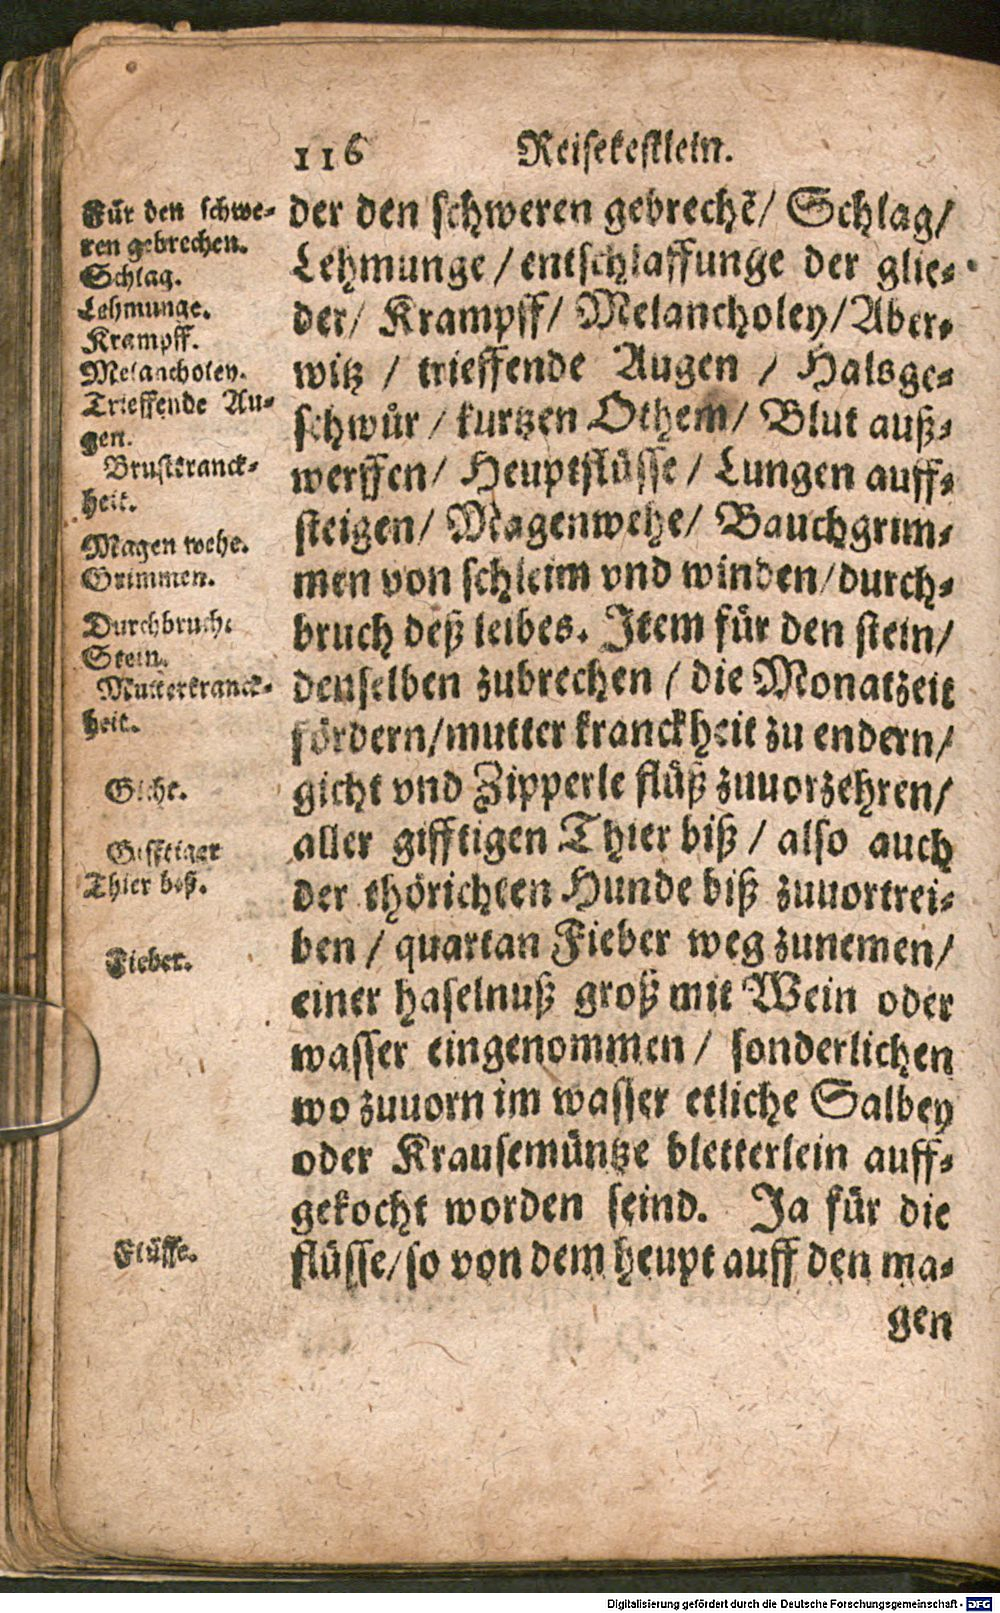 116 Reisekestlein.
Für den schwe-
ren gebrechen.
Schlag.
Lehmunge.
Krampff.
Melancholey.
Trieffende Au-
gen.
Brustkranck-
heit.
Magen wehe.
Grimmen.
Durchbruche
Stein.
Mutterkranck-
heit.
Gicht.
Gifftiger
Thier beß.
Fieber.
Flüsse.
der den schweren gebrechẽ/ Schlag/
Lehmunge/ entschlaffunge der glie-
der/ Krampff/ Melancholey/ Aber-
witz / trieffende Augen / Halsge-
schwůr / kurtzen Othem/ Blut auß-
werffen/ Heuptflüsse/ Lungen auff-
steigen/ Magenwehe/ Bauchgrim-
men von schleim vnd winden/durch-
bruch deß leibes. Item für den stein/
denselben zubrechen / die Monatzeit
fördern/mutter kranckheit zu endern/
gicht vnd Zipperle flüß zuuorzehren/
aller gifftigen Thier biß / also auch
der thörichten Hunde biß zuuortrei-
ben / quartan Fieber weg zunemen/
einer haselnuß groß mit Wein oder
wasser eingenommen/ sonderlichen
wo zuuorn im wasser etliche Salbey
oder Krausemüntze bletterlein auff-
gekocht worden seind. Ja für die
flüsse/so von dem heupt auff den ma-
gen
Digitalisierung gefördert durch die Deutsche Forschungsgemeinschaft - DFG